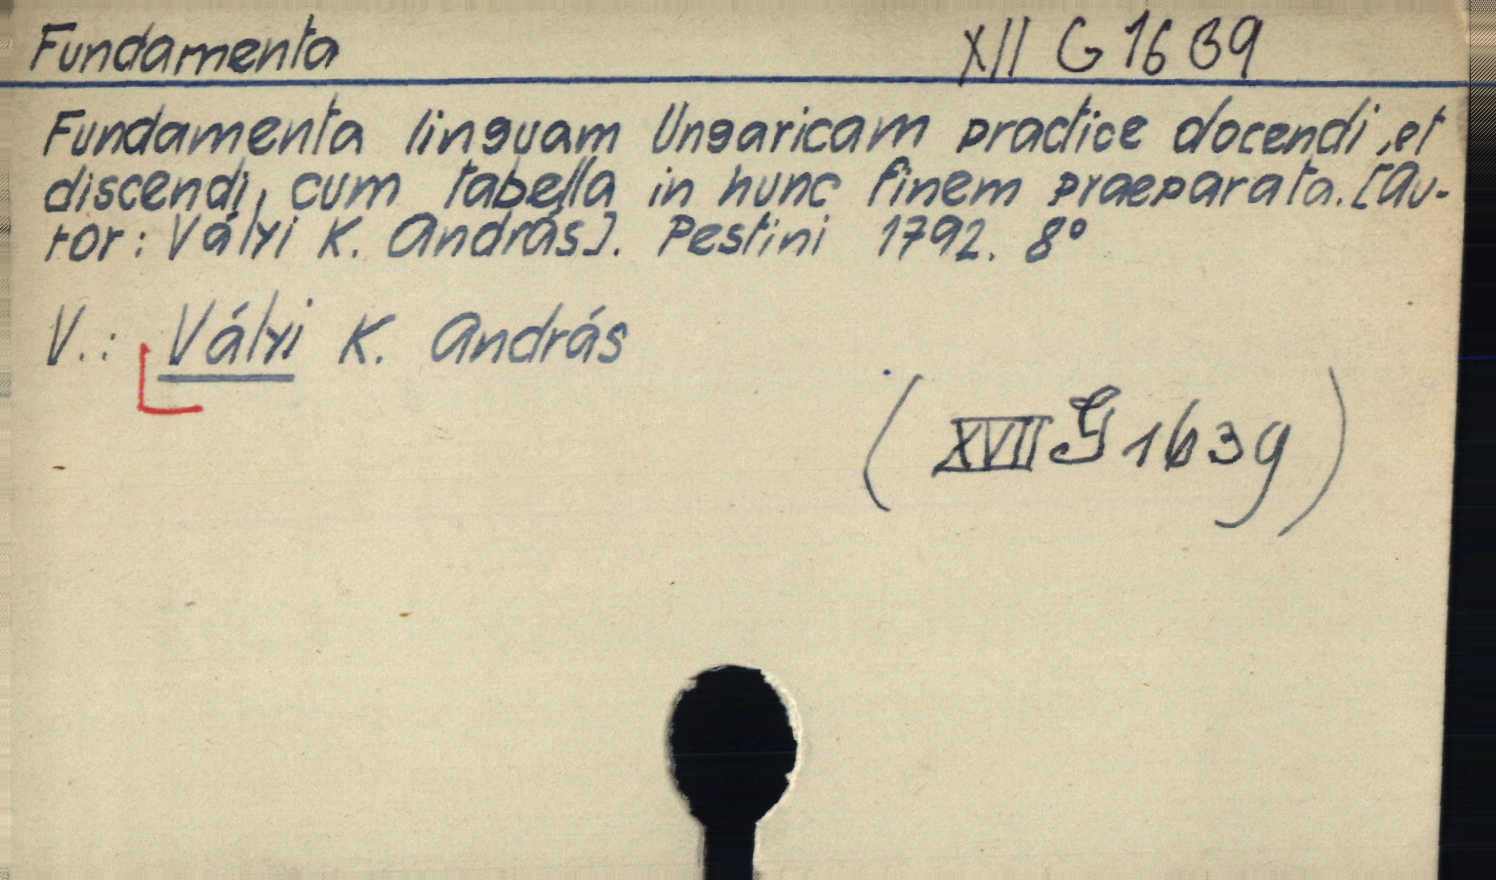 Fundamenta XII G 1639
Fundamenta linguam Ungaricam practice docendi, et
discendi, cum tabella in hunc finem praeparata. [Au-
tor: Vályi K. András]. Pestini 1792. 8°
V.: Vályi K. András
(XVII G 1639)